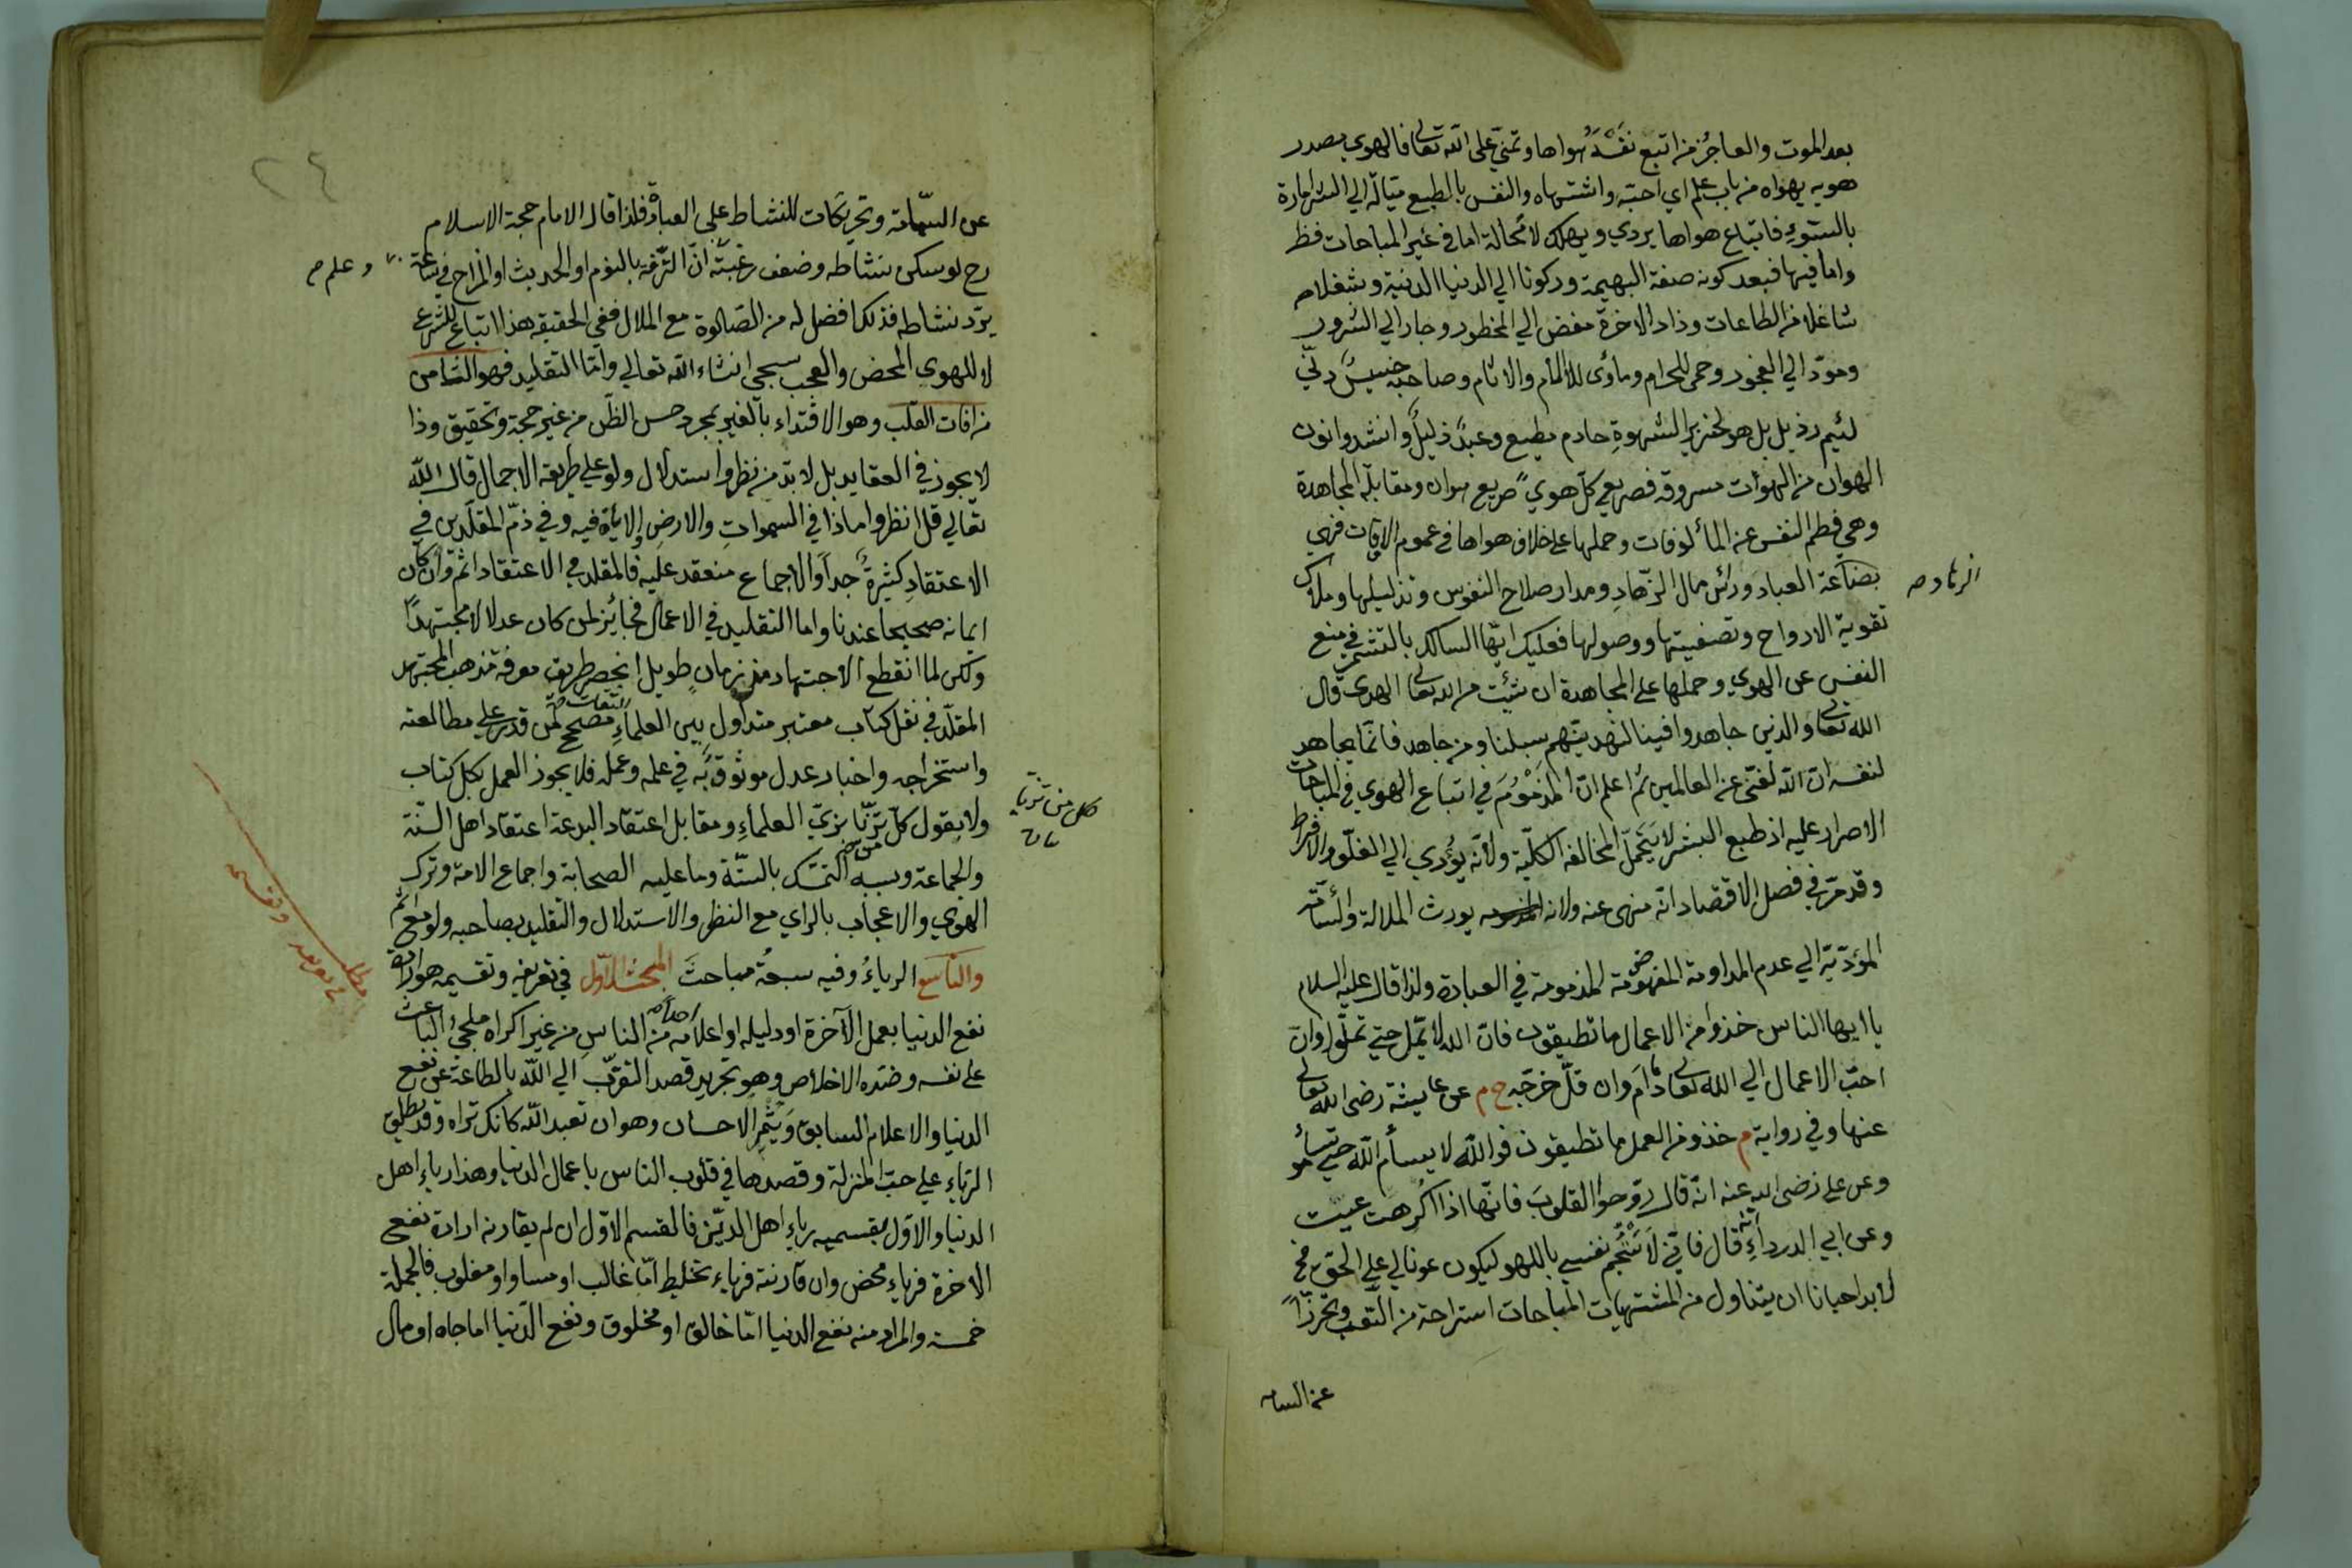 بعد الموت والعاجز من اتبع نفسه هواها وتمنى على الله تعالى فالهوى مصدر
هويه يهواه من باب علم اي احبه واشتهاه والنفس بالطبع ميالة الي الشر امارة
بالسوء فاتباع هواها يردي ويهلك لا محالة اما في غير المباحات فظ
واما فيها فبعد كونه صفة البهيمة وركونا الي الدنيا الدنية وشغلا
شاغلا من الطاعات وزاد الاخرة مفض الي المحظور وجار الي الشرور
ومؤد الي الفجور وحمى للحرام ومأوى للآلام والاثام وصاحبه خسيس دني
لئيم رذيل بل هو لخنزير الشهوة خادم مطيع وعبد ذليل وانشدوا نون
الهوان من الهوات مسروقة فصريع كل هوي صريع هوان ومقابله المجاهدة
وهي فطم النفس عن المألوفات وحملها على خلاف هواها في عموم الاوقات فهي
بضاعة العباد ورأس مال الزهاد ومدار صلاح النفوس وتذليلها وملاك
الزهاد صح
تقوية الارواح وتصفيتها ووصولها فعليك ايها السالك بالتشمر في منع
النفس عن الهوي وحملها على المجاهدة ان شئت من الله تعالى الهدى قال
الله تعالى والذين جاهدوا فينا لنهدينهم سبلنا ومن جاهد فانما يجاهد
لنفسه ان الله لغني عن العالمين ثم اعلم ان المذموم في اتباع الهوي في المباحات
الاصرار عليه اذ طبع البشر لا يتحمل المخالفة الكلية ولانه يؤدي الي الغلو والافراط
وقد مر في فصل الاقتصاد انه منهى عنه ولانه يورث الملالة والسآمة
المؤدية الي عدم المداومة المذمومة في العبادة ولذا قال عليه السلام
يا ايها الناس خذوا من الاعمال ما تطيقون فان الله لا يمل حتي تملوا وان
احب الاعمال الي الله تعالى ما دام وان قل خرجه خ م عن عايشة رضى الله تعالى
عنها وفي رواية م خذو من العمل ما تطيقون فوالله لا يسأم الله حتي تسأموا
وعن علي رضى الله عنه انه قال روحوا القلوب فانها اذا اكرهت عميت
وعن ابي الدرداء انه قال فاني لاستجم نفسي باللهو ليكون عونا لي علي الحق فح
لا بد احيانا ان يتناول من المشتهيات المباحات استراحة من التعب وتحرزا
عن السامه
٢٤
عن السآمة وتحريكات للنشاط على العبادة فلذا قال الامام حجة الاسلام
رح لو سكن نشاطه وضعف رغبته وعلم ان الترفه بالنوم او الحديث او المزاح في ساعة
وعلم صح
يرد نشاطه فذلك افضل له من الصلوة مع الملال ففي الحقيقة هذا اتباع للشرع
لا للهوي المحض والعجب سيجي انشاء الله تعالي واما التقليد فهو الثامن
من افات القلب وهو الاقتداء بالغير بمجرد حسن الظن من غير حجة وتحقيق وذا
لا يجوز في العقايد بل لا بد من نظر واستدلال ولو علي طريقة الاجمال قال الله
تعالي قل انظروا ماذا في السموات والارض الاية فيه وفي ذم المقلدين في
الاعتقاد كثيرة جدا والاجماع منعقد عليه فالمقلد في الاعتقاد اثم وان كان
ايمانه صحيحا عندنا واما التقليد في الاعمال فجائز لمن كان عدلا مجتهدا
ولكن لما انقطع الاجتهاد منذ زمان طويل انحصر طريق معرفة مذهب المجتهد
المقلد في نقل كتاب معتبر متداول بين العلماء الثقات مصحح لمن قدر على مطالعته
واستخراجه واخبار عدل موثوق به في علمه وعمله فلا يجوز العمل بكل كتاب
ولا بقول كل تزيا بزي العلماء ومقابل اعتقاد البدعة اعتقاد اهل السنة
كل من تزيا
والجماعة وسببه التمسك بالسنة وما عليه الصحابة واجماع الامة وترك
الهوي والاعجاب بالراي مع النظر والاستدلال والتقليد بصاحبه ولو مع اثم
والتاسع الرياء وفيه سبعة مباحث المبحث الاول في تعريفه وتقسيمه هو ارادة
نفع الدنيا بعمل الآخرة او دليله او اعلامه احدا من الناس من غير اكراه ملجئ الباعث
على نفسه وضده الاخلاص وهو تجريد قصد التقرب الي الله بالطاعة عن نفع
الدنيا والاعلام السابق ويثمر الاحسان وهو ان تعبد الله كانك تراه وقد يطلق
الرياء علي حب المنزلة وقصدها في قلوب الناس باعمال الدنيا وهذا رياء اهل
الدنيا والاول بقسميه رياء اهل الدين فالقسم الاول ان لم يقارنه ارادة نفع
الاخرة فرياء محض وان قارنته فرياء تخليط اما غالب او مساو او مغلوب فالجملة
خمسة والمراد منه نفع الدنيا اما خالق او مخلوق ونفع الدنيا اما جاه او مال